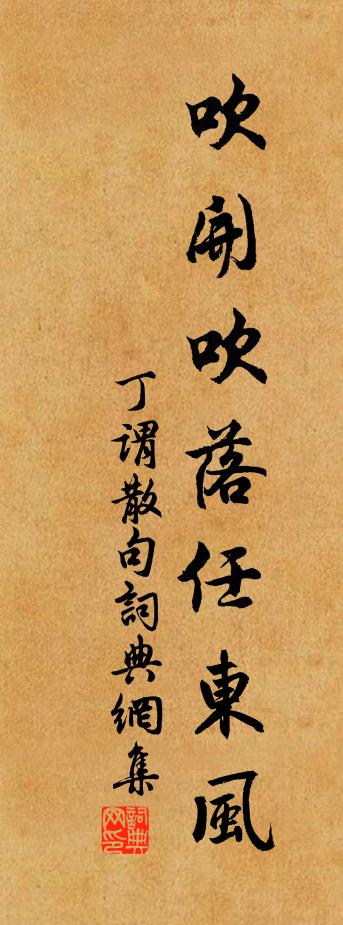 吹開吹落任東風
丁謂散句詞典網集
詞典网印